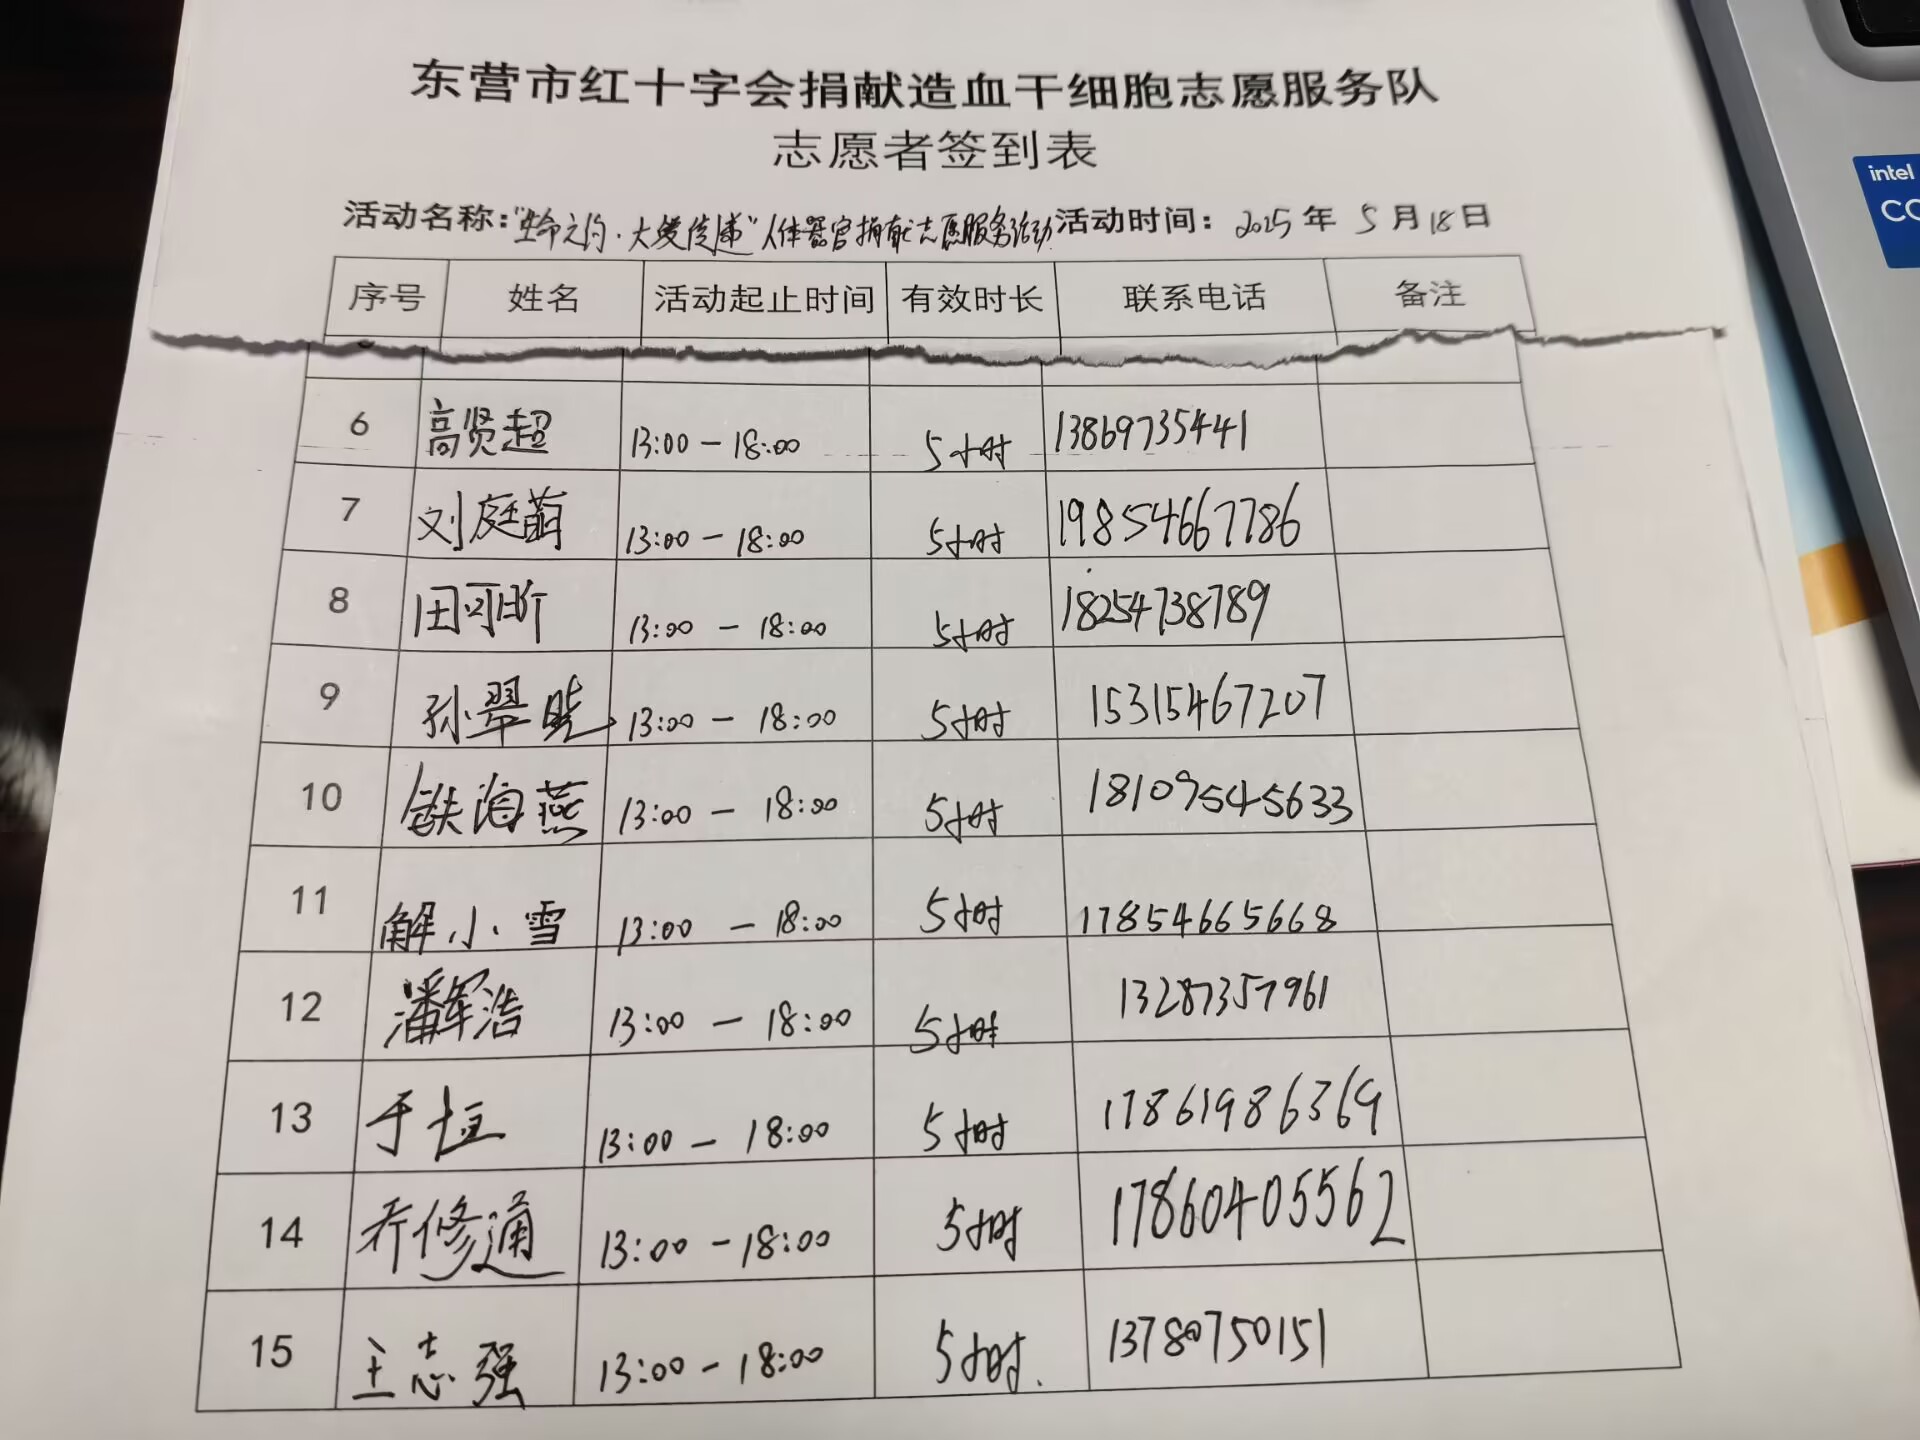 东营市红十字会捐献造血干细胞志愿服务队
志愿者签到表
活动名称:"生命之约·大爱传递"人体器官捐献志愿服务活动 活动时间: 2025 年 5 月 18 日
序号 姓名 活动起止时间 有效时长 联系电话 备注
6 高贤超 13:00-18:00 5小时 13869735441
7 刘庭萌 13:00-18:00 5小时 19854667786
8 田可昕 13:00-18:00 5小时 18254738789
9 孙翠晓 13:00-18:00 5小时 15315467207
10 铁海燕 13:00-18:00 5小时 18109545633
11 解小雪 13:00-18:00 5小时 17854665668
12 潘军浩 13:00-18:00 5小时 13287357961
13 于恒 13:00-18:00 5小时 17861986369
14 乔修通 13:00-18:00 5小时 17860405562
15 王志强 13:00-18:00 5小时. 13780750151
intel
CO